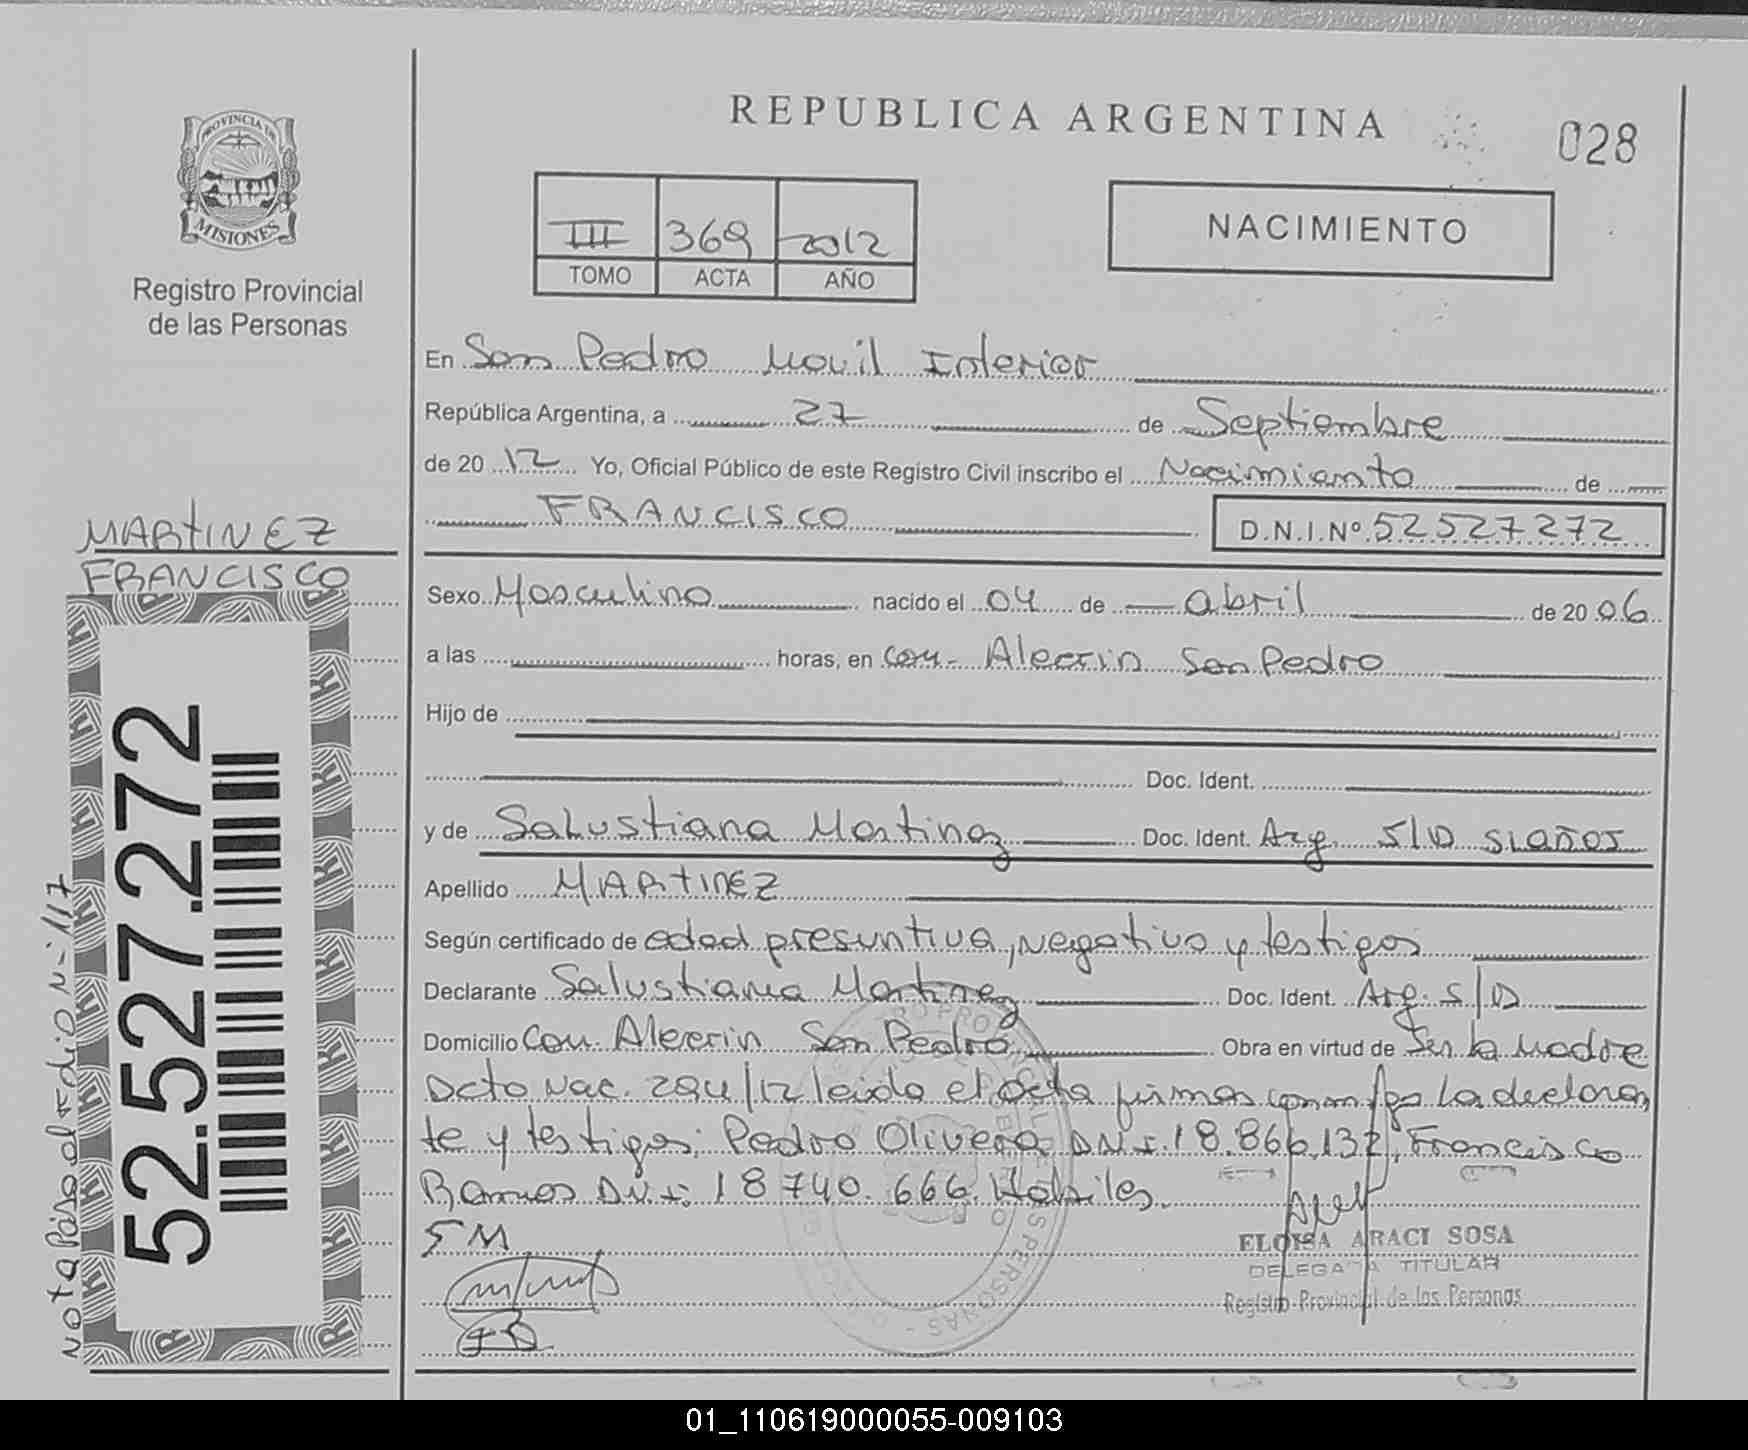 REPUBLICA ARGENTINA
028
PROVINCIA DE
MISIONES
Registro Provincial
de las Personas
III 369 2012
TOMO ACTA AÑO
NACIMIENTO
En San Pedro Movil Interior
República Argentina, a 27 de Septiembre
de 2012 Yo, Oficial Público de este Registro Civil inscribo el Nacimiento de
FRANCISCO D.N.I.Nº 52527272
MARTINEZ
FRANCISCO
Sexo Masculino nacido el 04 de abril de 2006
a las horas, en Com. Alecrin San Pedro
Hijo de
Doc. Ident.
y de Salustiana Martinez Doc. Ident. Arg. S/D 51 años
Apellido MARTINEZ
Según certificado de edad presuntiva, negativo y testigos
Declarante Salustiana Martinez Doc. Ident. Arg. S/D
Domicilio Com. Alecrin San Pedro Obra en virtud de Ser la madre
Dcto Nac. 294/12 leida el acta firman conmigo la declaran
te y testigos: Pedro Olivera DNI. 18.866.132, Francisco
Ramos DNI: 18740.666. Habiles.
SM
FR
ELOISA ARACI SOSA
DELEGADA TITULAR
Registro Provincial de las Personas
52.527.272
Nota Pase al Folio N- 117
01_110619000055-009103